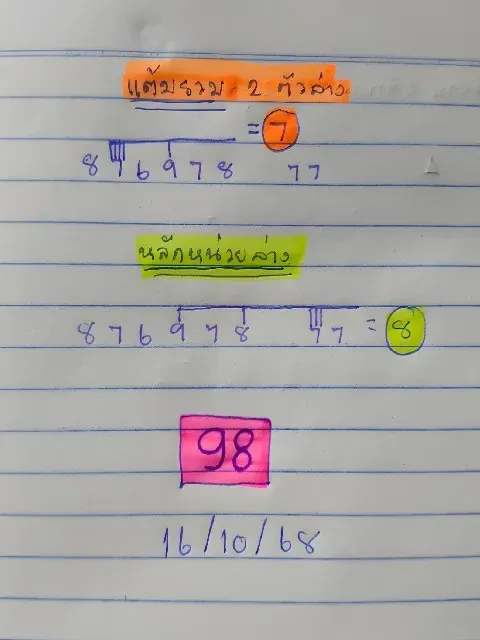 แต้มรวม 2 ตัวล่าง
= 7
876978 77
หลักหน่วยล่าง
876978 77 = 8
98
16/10/68